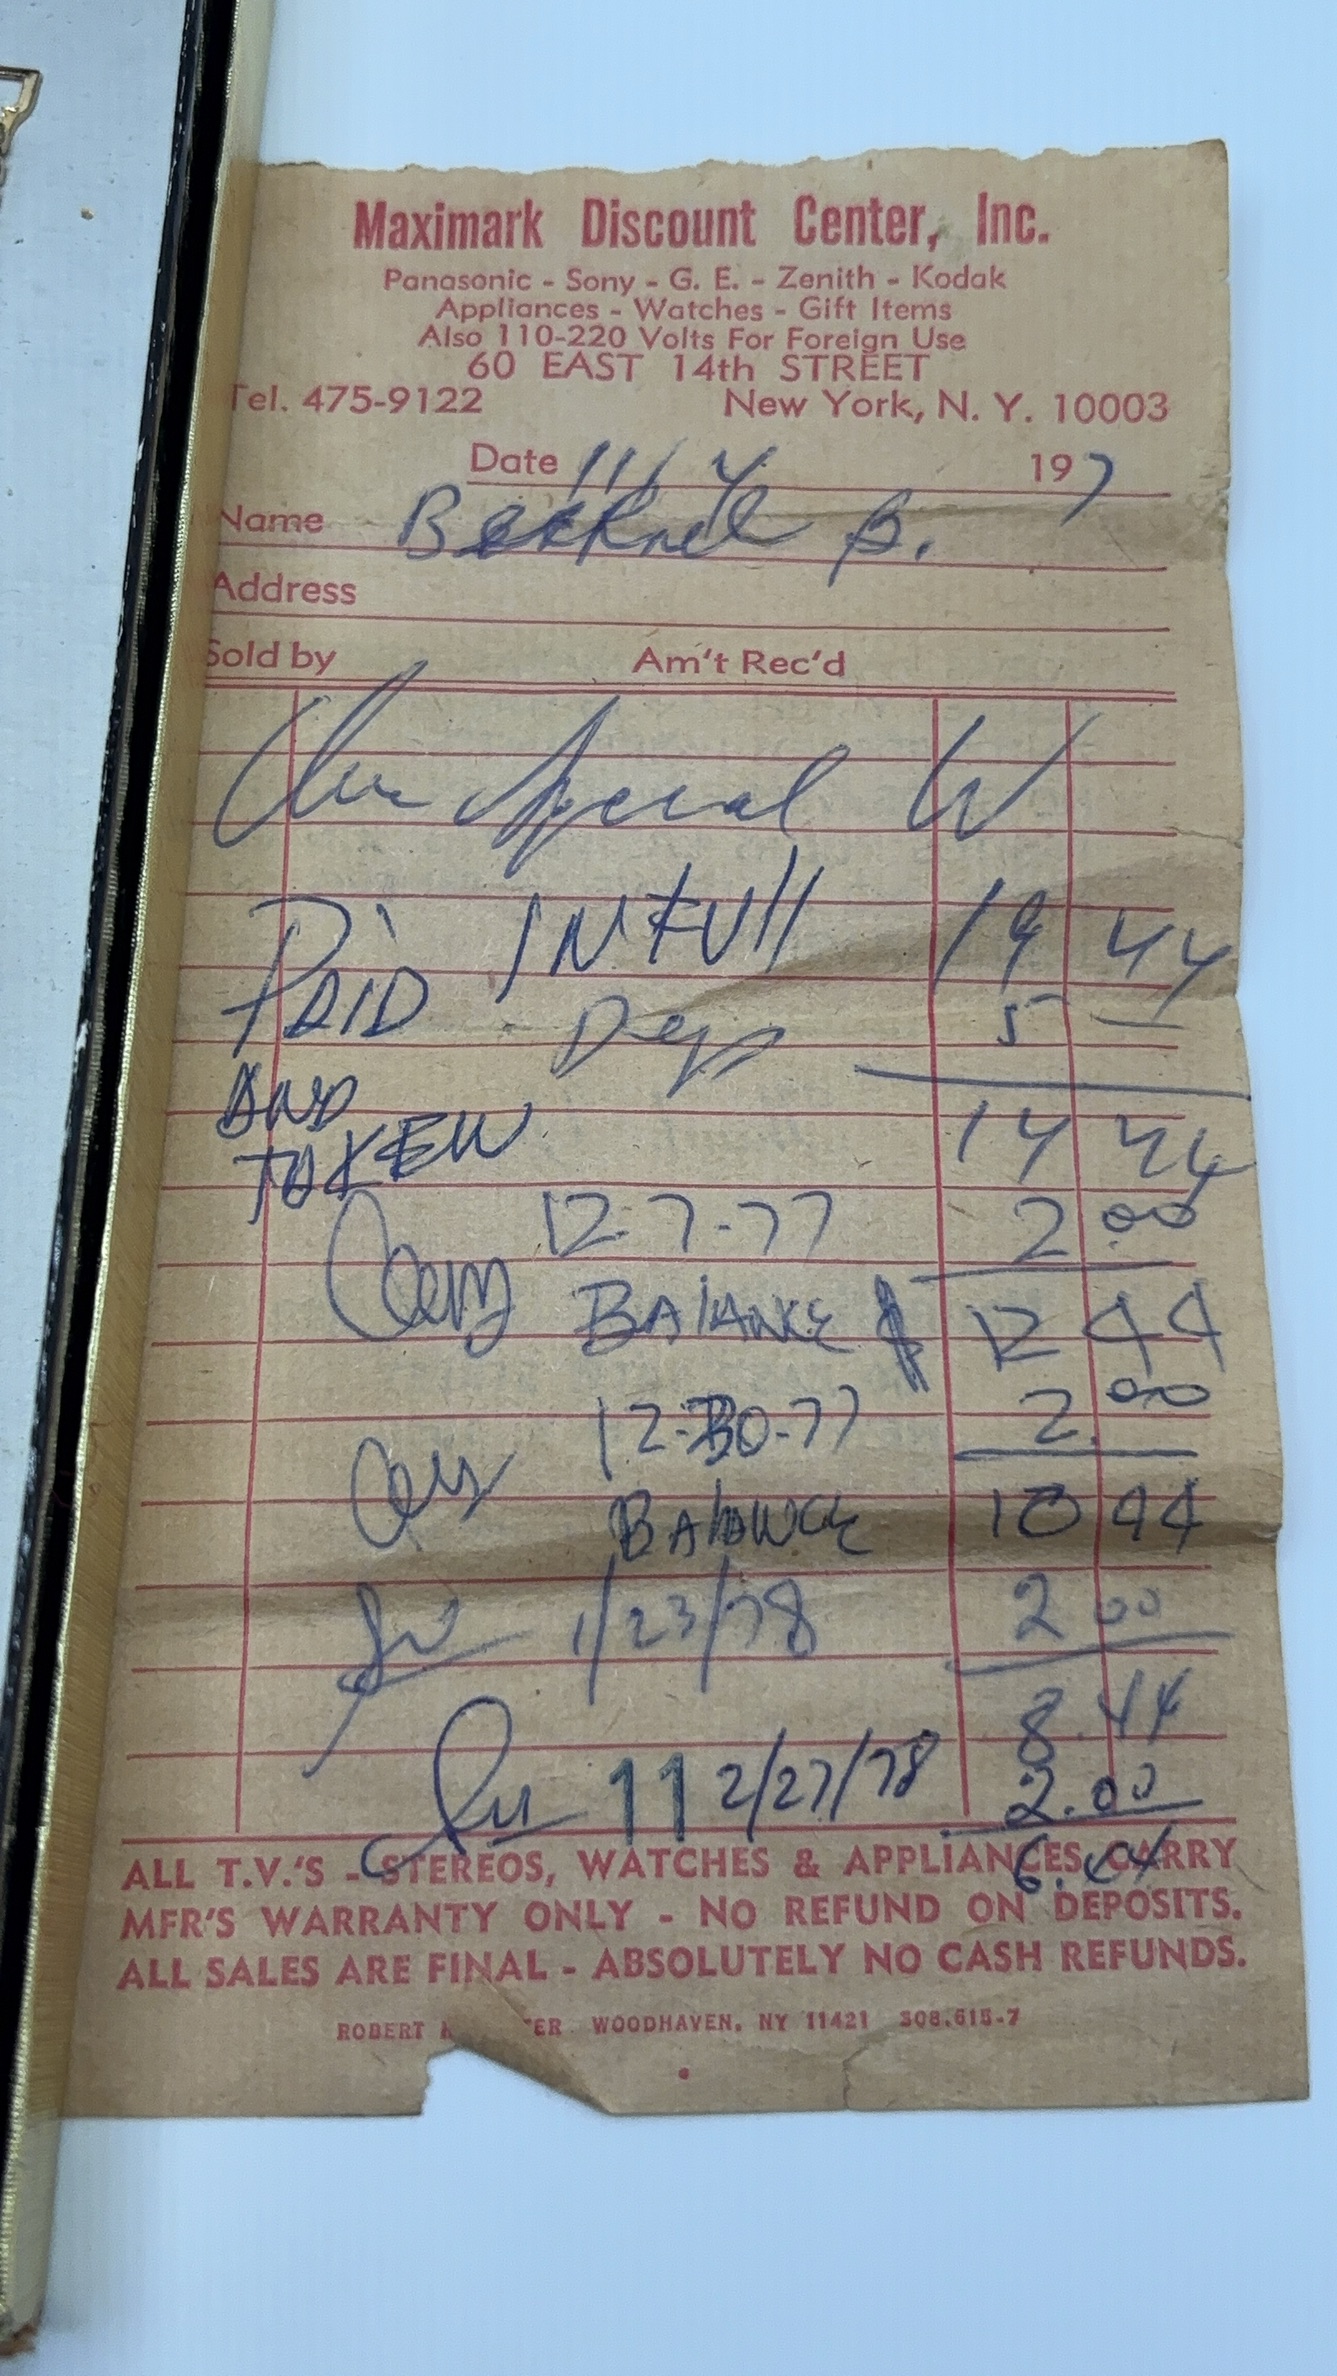 Maximark Discount Center, Inc.
Panasonic - Sony - G. E. - Zenith - Kodak
Appliances - Watches - Gift Items
Also 110-220 Volts For Foreign Use
60 EAST 14th STREET
Tel. 475-9122 New York, N. Y. 10003
Date 11/4 197
Name B.
Address
Sold by Am't Rec'd
Special W
PAID IN FULL 19 44
Dep 5 —
AND 14 44
TAKEN
12-7-77 2.00
BALANCE $ 12 44
12-30-77 2.00
BALANCE 10 44
1/23/78 2 00
8.44
11 2/27/78 2.00
6.44
ALL T.V.'S - STEREOS, WATCHES & APPLIANCES CARRY
MFR'S WARRANTY ONLY - NO REFUND ON DEPOSITS.
ALL SALES ARE FINAL - ABSOLUTELY NO CASH REFUNDS.
ROBERT WOODHAVEN, NY 11421 308.615-7